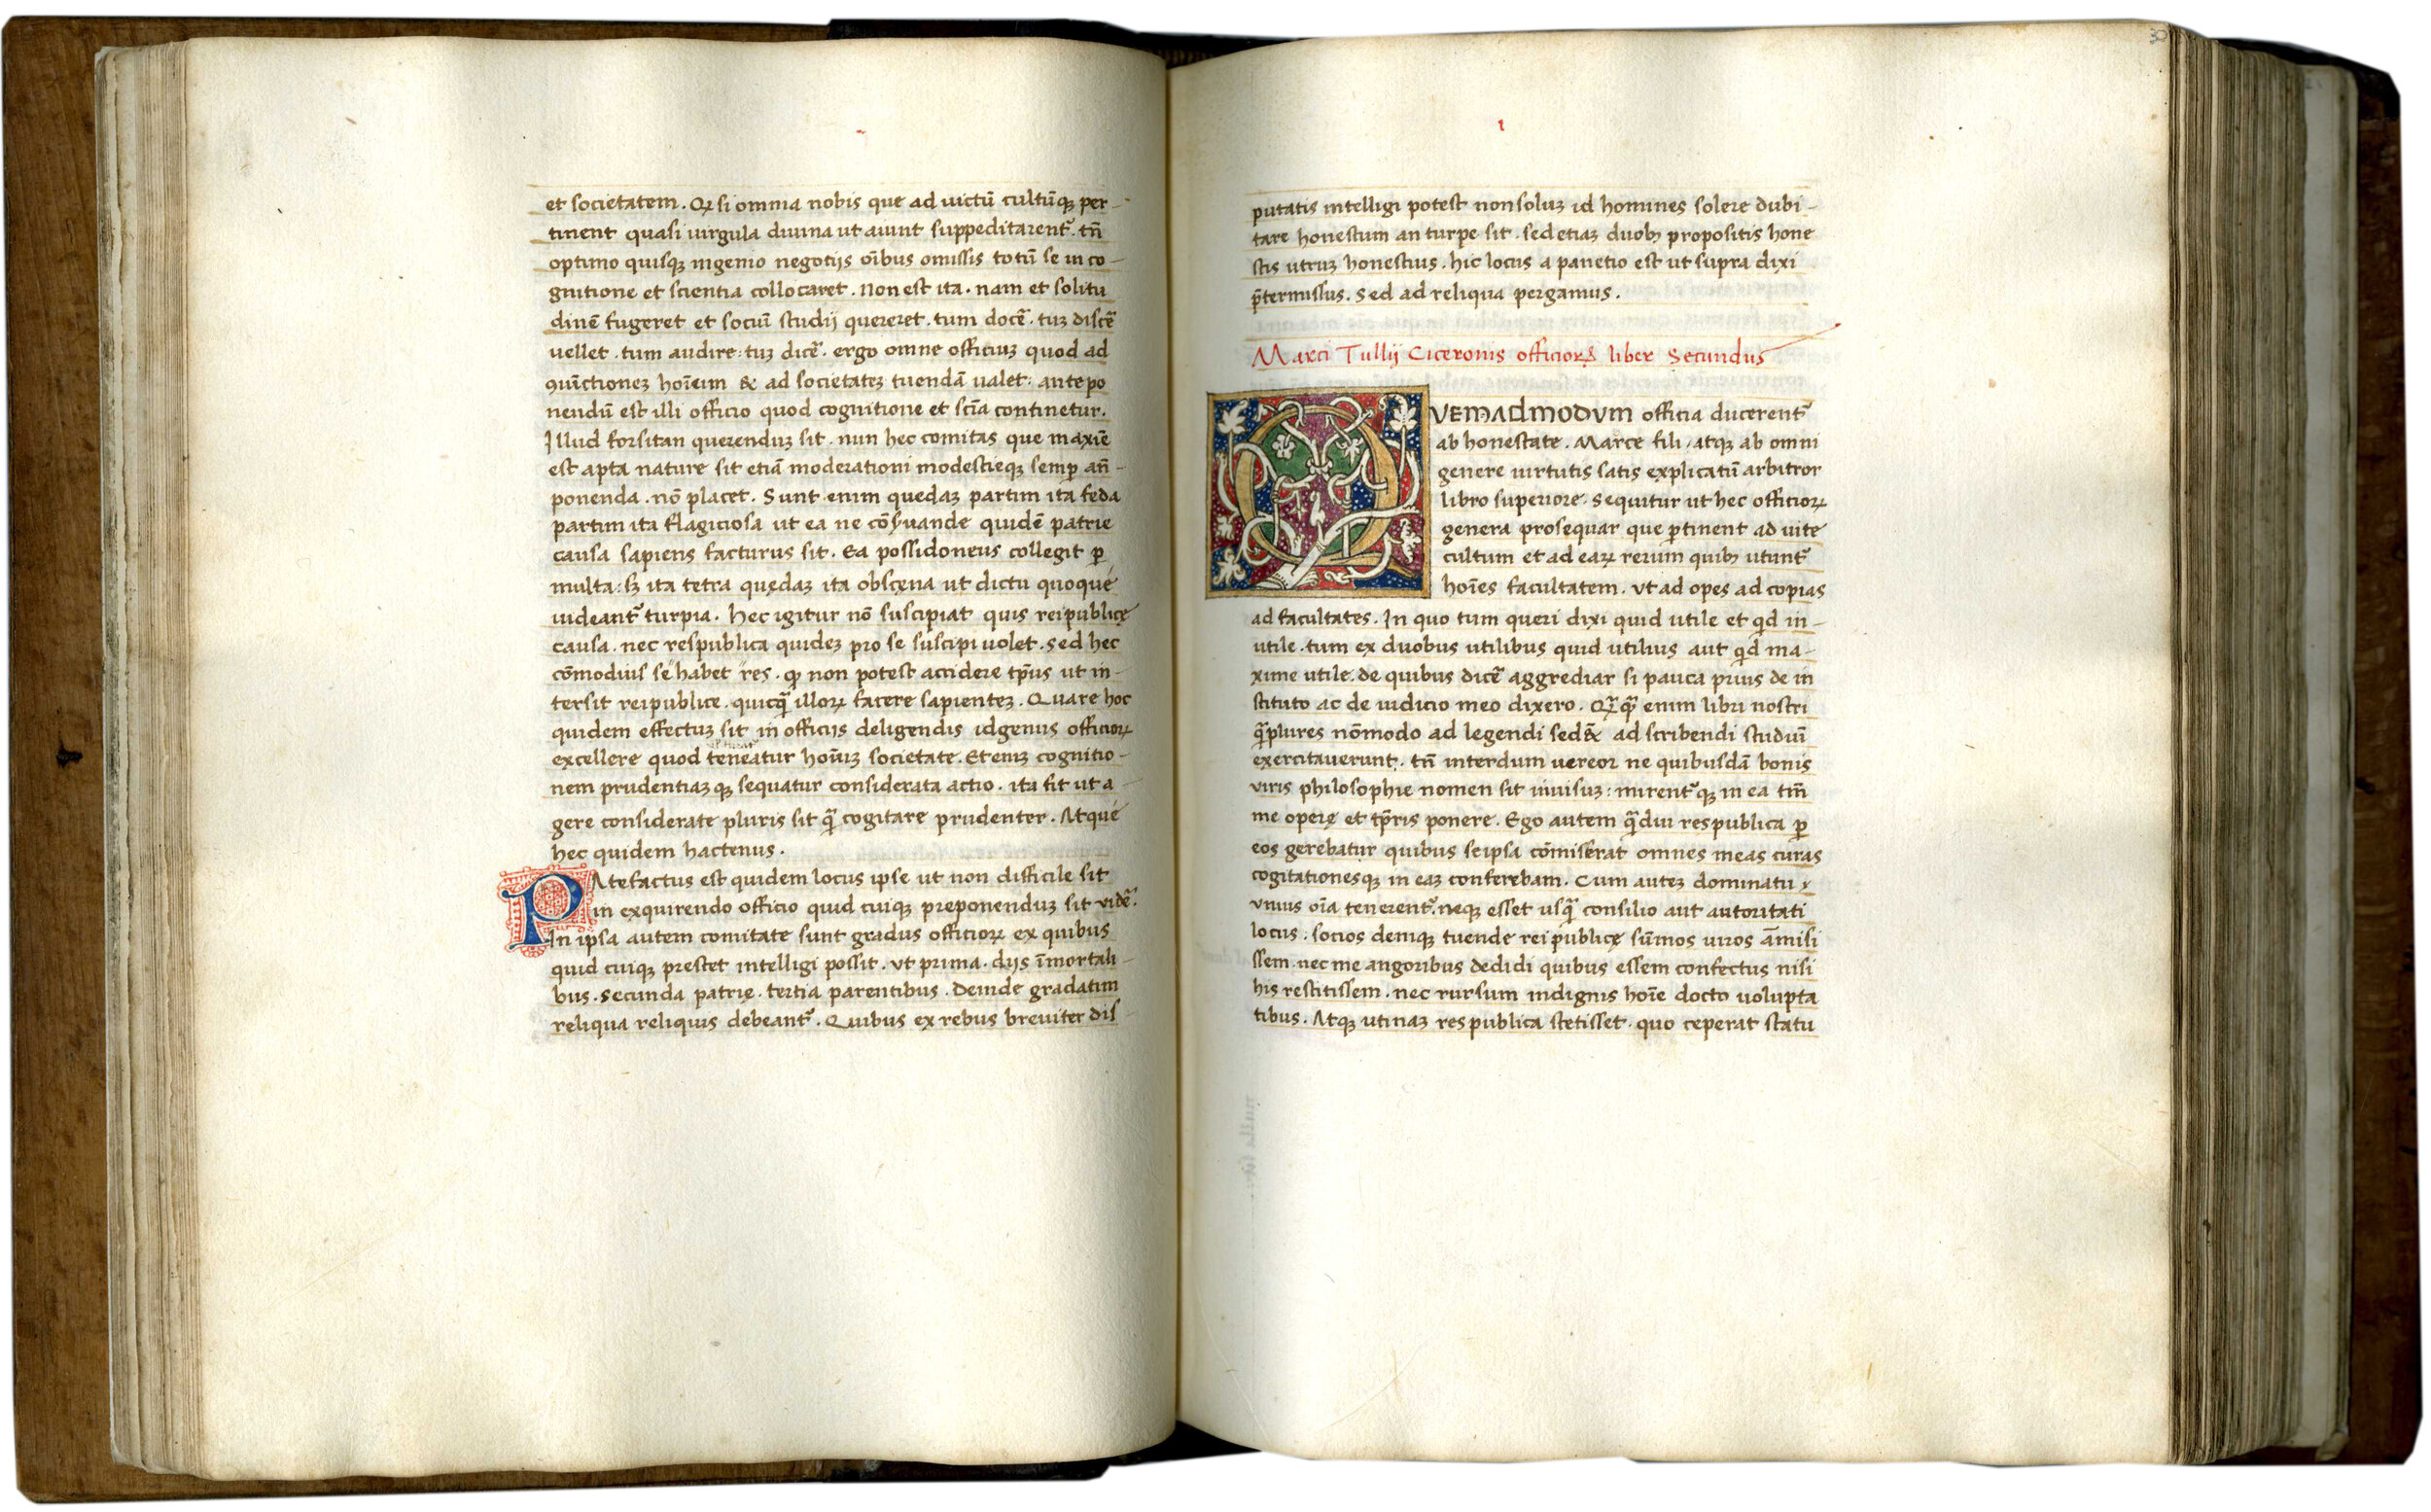 et societatem. Qꝫ si omnia nobis que ad uictū cultūqꝫ per-
tinent quasi uirgula diuina ut aiunt suppeditarent᷒. tn̄
optimo quisqꝫ ingenio negotijs oībus omissis totū se in co-
gnitione et scientia collocaret. non est ita. nam et solitu
dinē fugeret et sociū studij quereret. tum docē᷒. tuꝫ discē᷒
uellet. tum audire: tuꝫ dicē᷒. ergo omne officiuꝫ quod ad
ꝯiūctioneꝫ hoīeum & ad societateꝫ tuendā ualet: antepo
nendū est illi officio quod cognitione et scīa continetur.
Illud forsitan querenduꝫ sit. nun hec comitas que maxīe
est apta nature sit etiā moderationi modestieqꝫ semꝑ an̄-
ponenda. nō placet. Sunt enim quedaꝫ partim ita feda
partim ita flagiciosa ut ea ne cōẜuande quidē patrie
causa sapiens facturus sit. Ea possidoneus collegit ꝑ
multa: sꝫ ita tetra quędaꝫ ita obscęna ut dictu quoque
uideant᷒ turpia. Hec igitur nō suscipiat quis reipublicę
causa. nec respublica quideꝫ pro se suscipi uolet. sed hec
cōmodius se habet res. ꝙ non potest accidere tp̄us ut in-
tersit reipublice. quicq̄ illoꝝ facere sapienteꝫ. Quare hoc
quidem effectuꝫ sit in officijs deligendis id genus officioꝝ
excellere quod teneatur hoīuꝫ societate. Etenīꝫ cognitio-
nem prudentiaꝫqꝫ sequatur considerata actio. ita fit ut a-
gere considerate pluris sit q̄ cogitare prudenter. Atque
hec quidem hactenus.
PAtefactus est quidem locus ipse ut non difficile sit
in exquirendo officio quid cuiqꝫ preponenduꝫ sit vidē᷒.
In ipsa autem comitate sunt gradus officioꝝ ex quibus
quid cuiqꝫ prestet intelligi possit. vt prima. dijs īmortali-
bus. secunda patrię. tertia parentibus. deinde gradatim
reliqua reliquis debeant᷒. Quibus ex rebus breuiter dis-
30
putatis intelligi potest non soluꝫ id homines solere dubi-
tare honestum an turpe sit. sed etiaꝫ duobꝫ propositis hone
stis utruꝫ honestius. hic locus a panetio est ut supra dixi
p̄termissus. Sed ad reliqua pergamus.
Marci Tullij Ciceronis officioꝝ liber Secundus
QVEMADMODVM officia ducerent᷒
ab honestate. Marce fili. atqꝫ ab omni
genere uirtutis satis explicatū arbitror
libro superiore. Sequitur ut hec officioꝝ
genera prosequar que ꝑtinent ad uite
cultum et ad eaꝝ rerum quibꝫ utunt᷒
hoīes facultatem. vt ad opes ad copias
ad facultates. In quo tum queri dixi quid utile et qid in-
utile. tum ex duobus utilibus quid utilius aut qid ma-
xime utile. de quibus dicē᷒ aggrediar si pauca prius de in
stituto ac de iudicio meo dixero. Qꝫq̄ enim libri nostri
q̄plures nōmodo ad legendi sed& ad scribendi studiū
exercitauerunt. tn̄ interdum uereor ne quibusdā bonis
viris philosophie nomen sit inuisuꝫ: mirent᷒qꝫ in ea tm̄
me operę et tp̄ris ponere. Ego autem q̄diu respublica ꝑ
eos gerebatur quibus seipsa cōmiserat omnes meas curas
cogitationesqꝫ in eaꝫ conferebam. Cum auteꝫ dominatu
vnius oīa tenerent᷒. neqꝫ esset usq̄ consilio aut autoritati
locus. socios deniqꝫ tuende reipublicę sūmos uiros āmisi
ssem. nec me angoribus dedidi quibus essem confectus nisi
his restitissem. nec rursum indignis hoīe docto uolupta
tibus. Atqꝫ utinaꝫ respublica stetisset. quo ceperat statu